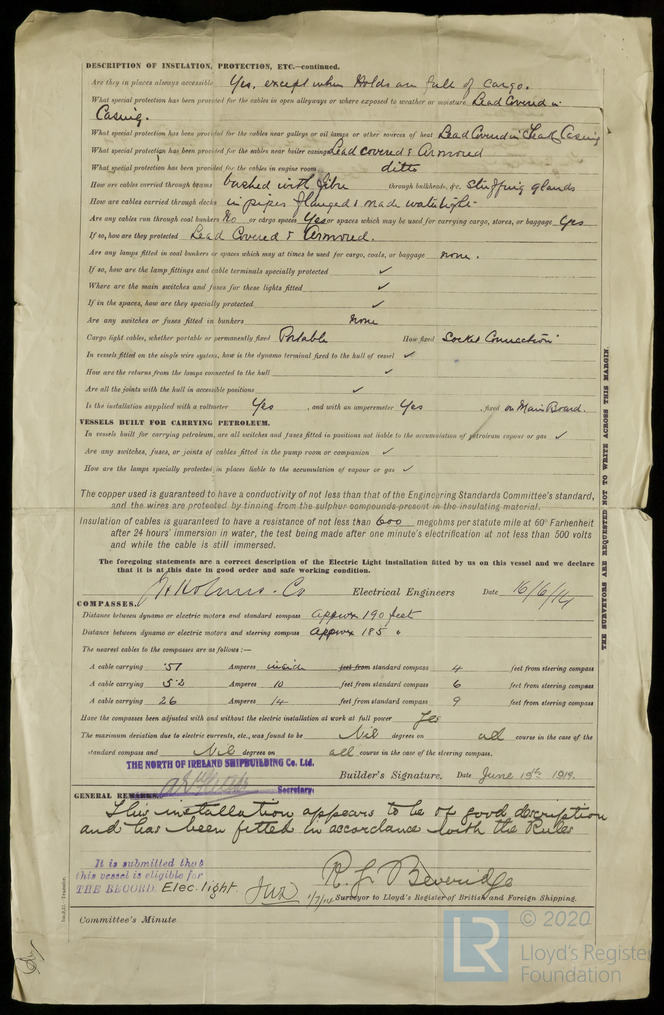 DESCRIPTION OF INSULATION, PROTECTION, ETC.—continued.
Are they in places always accessible Yes, except when Holds are full of cargo.
What special protection has been provided for the cables in open alleyways or where exposed to weather or moisture Lead Covered in
Casing.
What special protection has been provided for the cables near galleys or oil lamps or other sources of heat Lead Covered in Teak Casing
What special protection has been provided for the cables near boiler casings Lead covered & Armored
What special protection has been provided for the cables in engine room ditto
How are cables carried through beams bushed with fibre through bulkheads, &c. Stuffing glands
How are cables carried through decks in pipes flanged & made watertight
Are any cables run through coal bunkers No or cargo spaces Yes or spaces which may be used for carrying cargo, stores, or baggage Yes
If so, how are they protected Lead Covered & Armored.
Are any lamps fitted in coal bunkers or spaces which may at times be used for cargo, coals, or baggage none.
If so, how are the lamp fittings and cable terminals specially protected ✓
Where are the main switches and fuses for these lights fitted ✓
If in the spaces, how are they specially protected ✓
Are any switches or fuses fitted in bunkers none
Cargo light cables, whether portable or permanently fixed Portable How fixed Socket Connection
In vessels fitted on the single wire system, how is the dynamo terminal fixed to the hull of vessel ✓
How are the returns from the lamps connected to the hull ✓
Are all the joints with the hull in accessible positions ✓
Is the installation supplied with a voltmeter Yes , and with an amperemeter Yes , fixed on Main Board.
VESSELS BUILT FOR CARRYING PETROLEUM.
In vessels built for carrying petroleum, are all switches and fuses fitted in positions not liable to the accumulation of petroleum vapour or gas ✓
Are any switches, fuses, or joints of cables fitted in the pump room or companion ✓
How are the lamps specially protected in places liable to the accumulation of vapour or gas ✓
The copper used is guaranteed to have a conductivity of not less than that of the Engineering Standards Committee's standard,
and the wires are protected by tinning from the sulphur compounds present in the insulating material.
Insulation of cables is guaranteed to have a resistance of not less than 600 megohms per statute mile at 60° Farhenheit
after 24 hours' immersion in water, the test being made after one minute's electrification at not less than 500 volts
and while the cable is still immersed.
The foregoing statements are a correct description of the Electric Light installation fitted by us on this vessel and we declare
that it is at this date in good order and safe working condition.
J. H. Holmes & Co Electrical Engineers Date 16/6/14
COMPASSES.
Distance between dynamo or electric motors and standard compass Approx 190 feet
Distance between dynamo or electric motors and steering compass Approx 185 "
The nearest cables to the compasses are as follows:—
A cable carrying .57 Amperes inside feet from standard compass 4 feet from steering compass
A cable carrying 5.2 Amperes 10 feet from standard compass 6 feet from steering compass
A cable carrying 26 Amperes 14 feet from standard compass 9 feet from steering compass
Have the compasses been adjusted with and without the electric installation at work at full power Yes
The maximum deviation due to electric currents, etc., was found to be Nil degrees on all course in the case of the
standard compass and Nil degrees on all course in the case of the steering compass.
THE NORTH OF IRELAND SHIPBUILDING Co. Ltd.
Secretary.
Builder's Signature. Date June 19th 1914.
GENERAL REMARKS.
This installation appears to be of good description
and has been fitted in accordance with the Rules
It is submitted that
this vessel is eligible for
THE RECORD. Elec. light
R. J. Beveridge
1/7/14 Surveyor to Lloyd's Register of British and Foreign Shipping.
Committee's Minute
THE SURVEYORS ARE REQUESTED NOT TO WRITE ACROSS THIS MARGIN.
LR © 2020
Lloyd's Register
Foundation